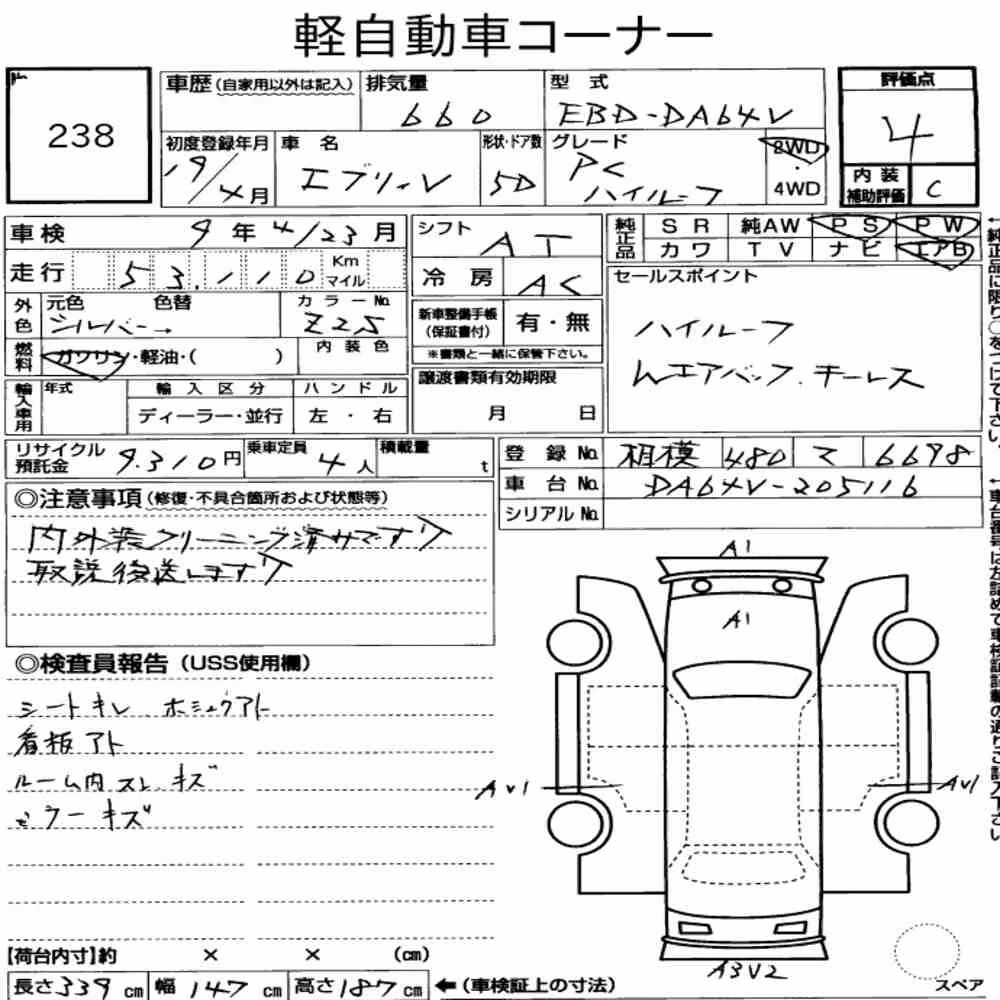 軽自動車コーナー
238
車歴(自家用以外は記入) 排気量 型式 評価点
660 EBD-DA64V 4
初度登録年月 車名 形状・ドア数 グレード 2WD・4WD
19/4月 エブリィV 5D PC ハイルーフ
内装補助評価 C
車検 9年4/23月
シフト AT
純正品 SR 純AW PS PW
カワ TV ナビ エアB
走行 53,110 Km マイル
冷房 AC
セールスポイント
ハイルーフ
Wエアバッグ.キーレス
外色 元色 色替 カラーNo.
シルバー→ Z25
新車整備手帳(保証書付) 有・無
※書類と一緒に保管下さい。
燃料 ガソリン・軽油・( ) 内装色
譲渡書類有効期限
月 日
輸入車用 年式 輸入区分 ハンドル
ディーラー・並行 左・右
リサイクル預託金 9,310円 乗車定員 4人 積載量 t
登録No. 相模 480 マ 6698
車台No. DA64V-205116
シリアルNo.
◎注意事項(修復・不具合箇所および状態等)
内外装クリーニング済みです
取説後送します
◎検査員報告(USS使用欄)
シートキレ ホシュウアト
看板アト
ルーム内スレ キズ
ミラーキズ
A1
A1
AV1
AV1
A3V2
【荷台内寸】約 × × (cm)
長さ339cm 幅147cm 高さ187cm ←(車検証上の寸法)
スペア
←純正品に限り○をつけて下さい。
←車台番号は左詰めで車検証記載の通りご記入下さい